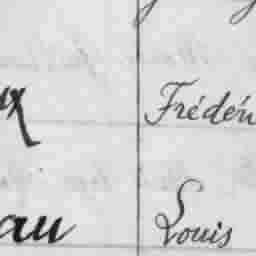 x Frédér
au Louis